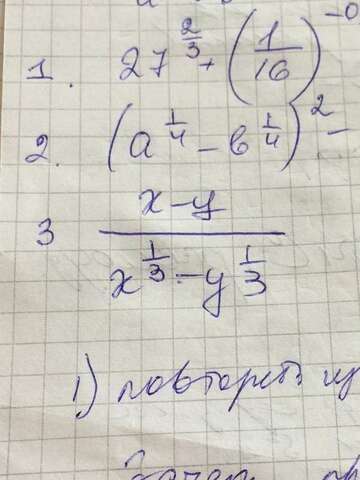 1. 27^{2/3} + (1/16)^{-0
2. (a^{1/4} - в^{1/4})^2 -
3 (x-y)/(x^{1/3} - y^{1/3})
1) повтореть